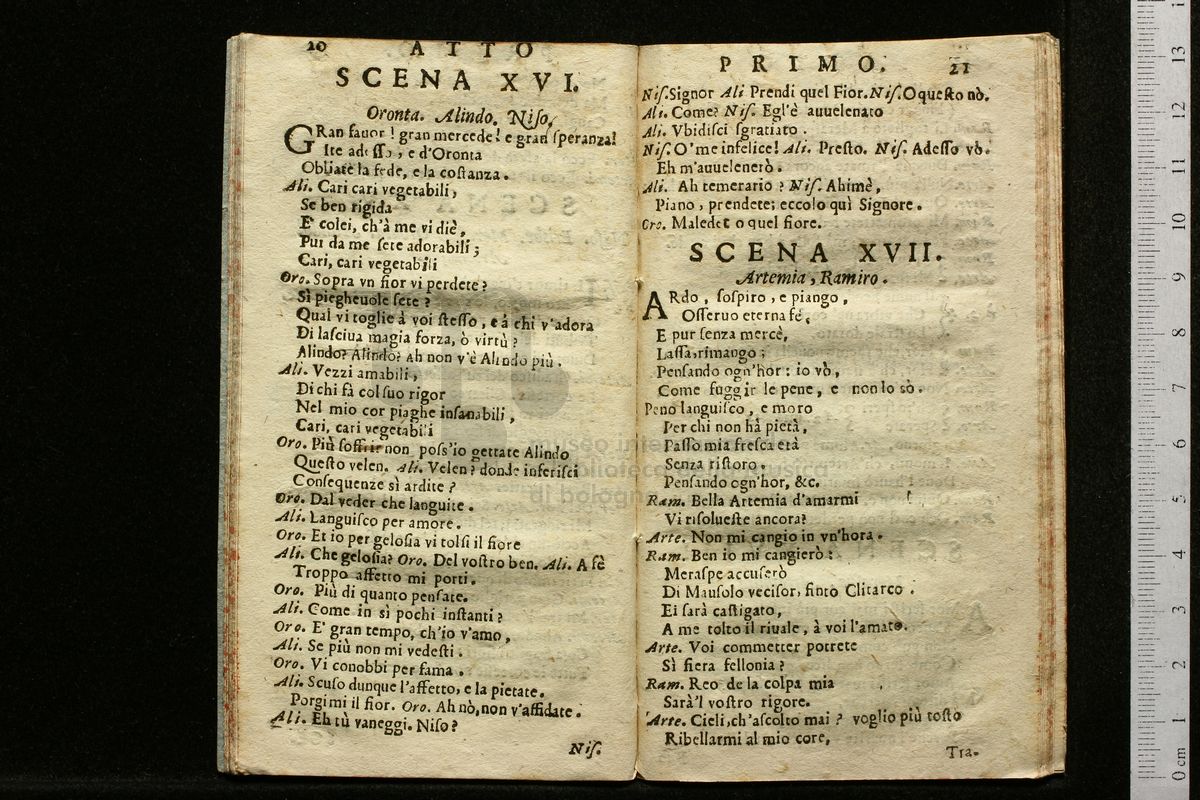 20 ATTO
SCENA XVI.
Oronta. Alindo. Niſo.
GRan fauor! gran mercede! e gran ſperanza!
Ite adeſſo, e d'Oronta
Obliate la fede, e la coſtanza.
Ali. Cari cari vegetabili,
Se ben rigida
E' colei, ch'à me vi diè,
Pur da me ſete adorabili;
Cari, cari vegetabili
Oro. Sopra vn fior vi perdete?
Sì piegheuole ſete?
Qual vi toglie à voi ſteſſo, e à chi v'adora
Di laſciua magia forza, ò virtù?
Alindo? Alindo? Ah non v'è Alindo più.
Ali. Vezzi amabili,
Di chi fà col ſuo rigor
Nel mio cor piaghe inſanabili,
Cari, cari vegetabili
Oro. Più ſoffrir non poſs'io gettate Alindo
Queſto velen. Ali. Velen? donde inferiſci
Conſequenze sì ardite?
Oro. Dal veder che languite.
Ali. Languiſco per amore.
Oro. Et io per geloſia vi tolſi il fiore
Ali. Che geloſia? Oro. Del voſtro ben. Ali. A fè
Troppo affetto mi porti.
Oro. Più di quanto penſate.
Ali. Come in sì pochi inſtanti?
Oro. E' gran tempo, ch'io v'amo,
Ali. Se più non mi vedeſti.
Oro. Vi conobbi per fama.
Ali. Scuſo dunque l'affetto, e la pietate.
Porgimi il fior. Oro. Ah nò, non v'affidate.
Ali. Eh tù vaneggi. Niſo?
Niſ.
PRIMO. 21
Niſ. Signor Ali Prendi quel Fior. Niſ. O queſto nò.
Ali. Come? Niſ. Egl'è auuelenato
Ali. Vbidiſci ſgratiato.
Niſ. O' me infelice! Ali. Preſto. Niſ. Adeſſo vò.
Eh m'auuelenerò.
Ali. Ah temerario? Niſ. Ahimè,
Piano, prendete; eccolo quì Signore.
Oro. Maledetto quel fiore.
SCENA XVII.
Artemia, Ramiro.
ARdo, ſoſpiro, e piango,
Oſſeruo eterna fé,
E pur ſenza mercè,
Laſſa, rimango;
Penſando ogn'hor: io vò,
Come fuggir le pene, e non lo sò.
Peno languiſco, e moro
Per chi non hà pietà,
Paſſo mia freſca età
Senza riſtoro.
Penſando ogn'hor, &c.
Ram. Bella Artemia d'amarmi
Vi riſolueſte ancora?
Arte. Non mi cangio in vn'hora.
Ram. Ben io mi cangierò:
Meraſpe accuſerò
Di Mauſolo vcciſor, finto Clitarco.
Ei ſarà caſtigato,
A me tolto il riuale, à voi l'amato.
Arte. Voi commetter potrete
Sì fiera fellonia?
Ram. Reo de la colpa mia
Sarà'l voſtro rigore.
Arte. Cieli, ch'aſcolto mai? voglio più toſto
Ribellarmi al mio core,
Tra-